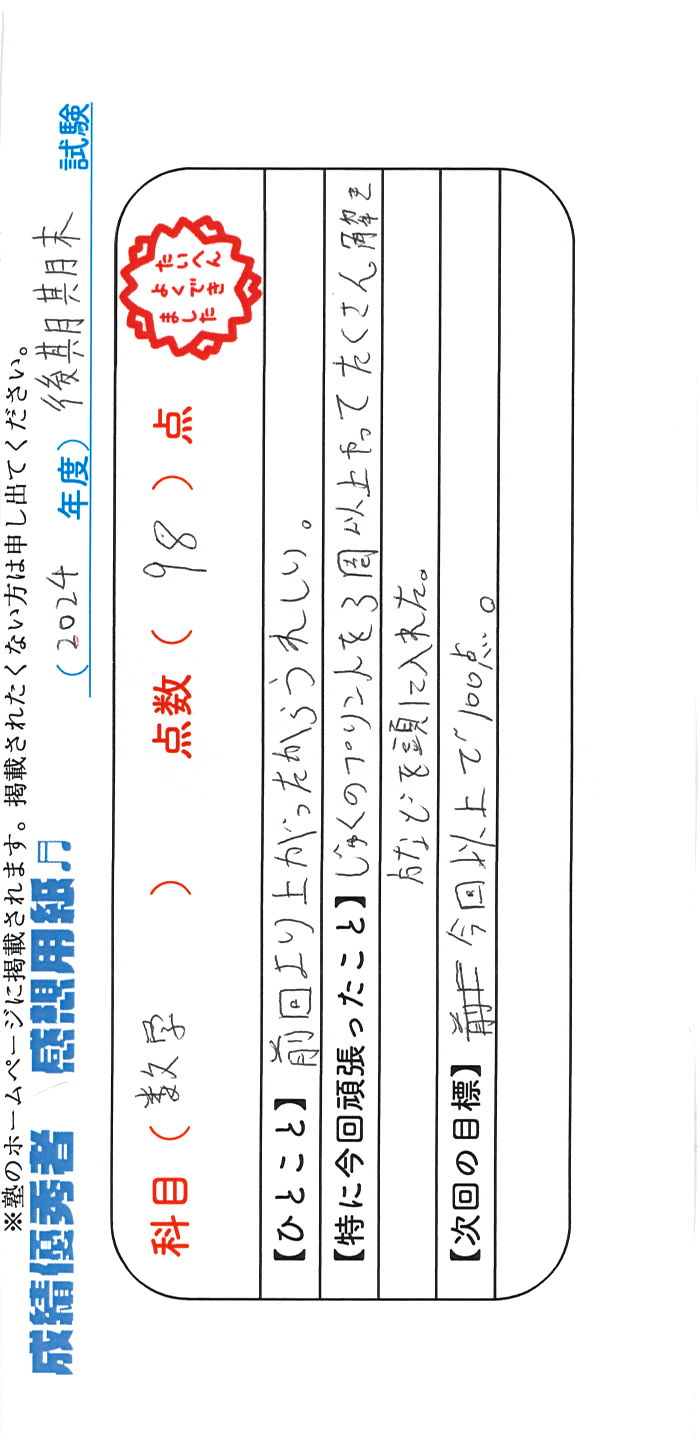 ※塾のホームページに掲載されます。掲載されたくない方は申し出てください。
成績優秀者 感想用紙♫ (2024 年度) 後期期末 試験
科目 ( 数学 ) 点数 ( 98 ) 点
たいへん
よくでき
ました
【ひとこと】前回より上がったからうれしい。
【特に今回頑張ったこと】じゅくのプリントを3周以上やってたくさん解き
方などを頭に入れた。
【次回の目標】今回以上で100点。